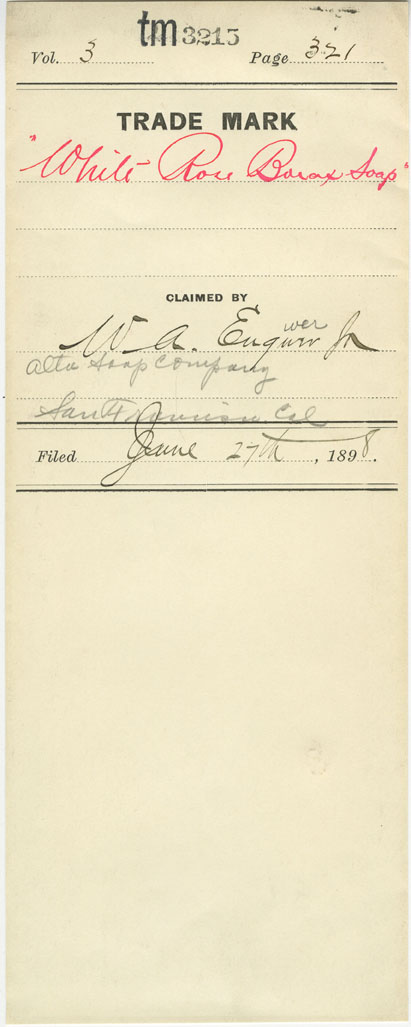 tm 3215
Vol. 3 Page 321
TRADE MARK
"White Rose Borax Soap"
CLAIMED BY
wer
W. A. Enquver Jr
Alta Soap Company
San Francisco Cal
Filed June 27th, 1898.